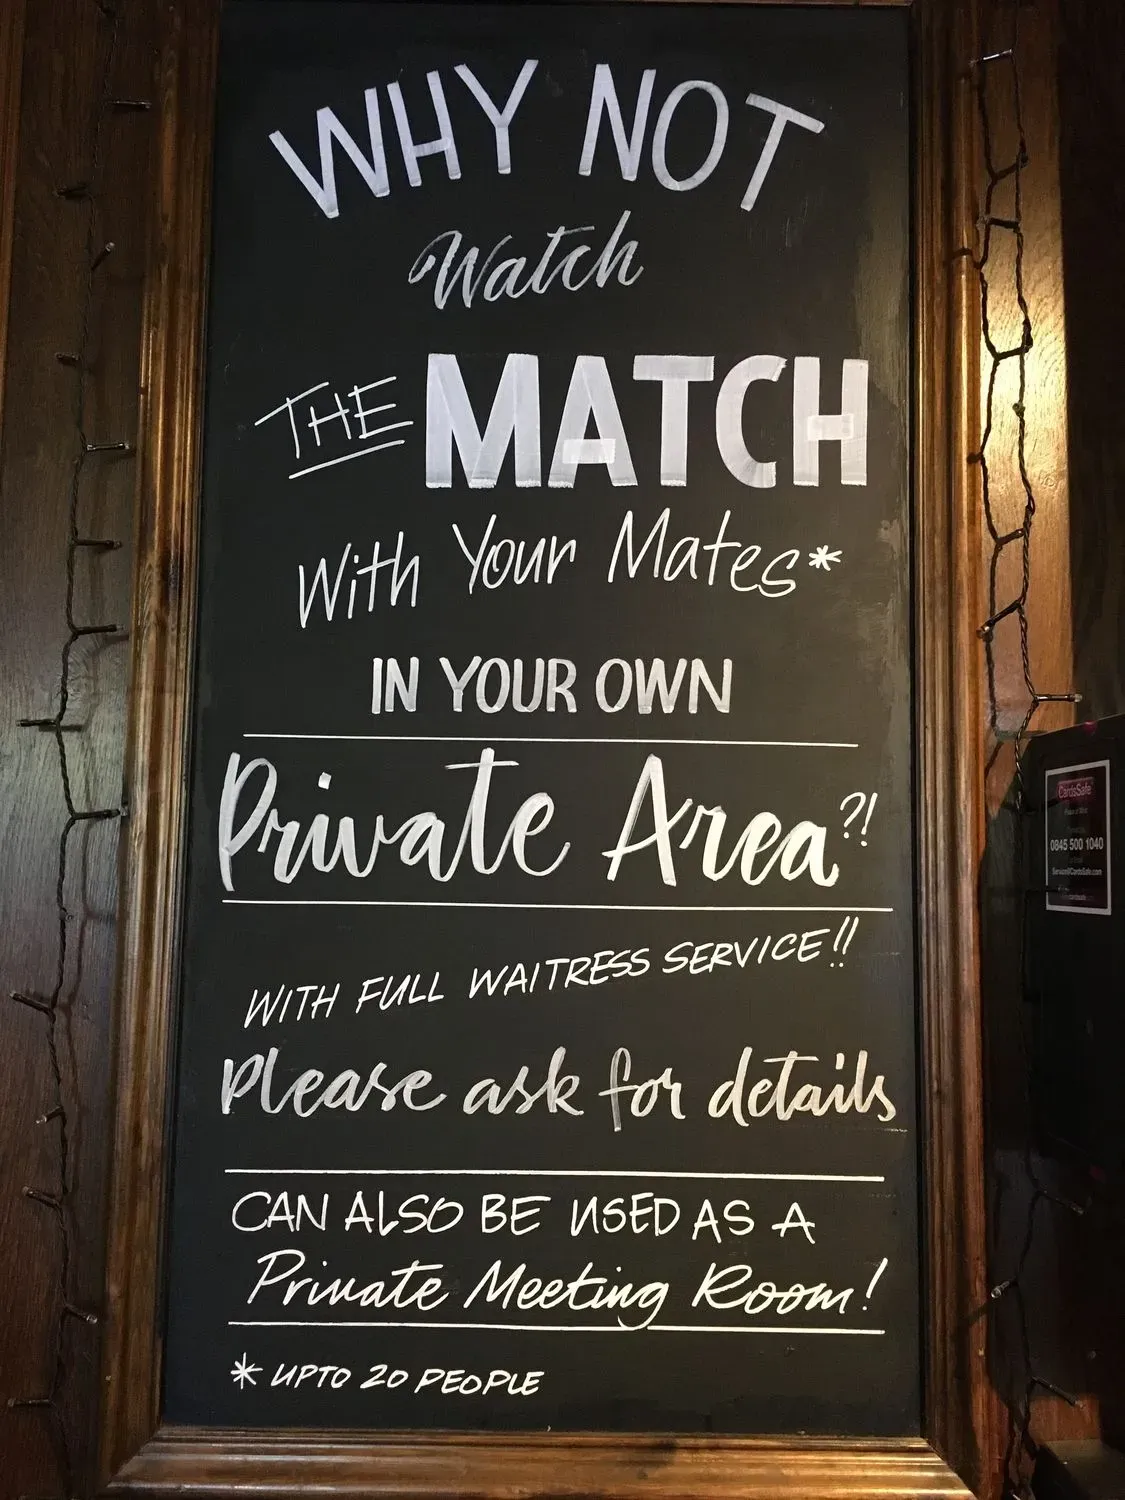 WHY NOT
Watch
THE MATCH
With Your Mates*
IN YOUR OWN
Private Area?!
WITH FULL WAITRESS SERVICE!!
Please ask for details
CAN ALSO BE USED AS A
Private Meeting Room!
* UPTO 20 PEOPLE
CardsSafe
0845 500 1040
Service@CardsSafe.com